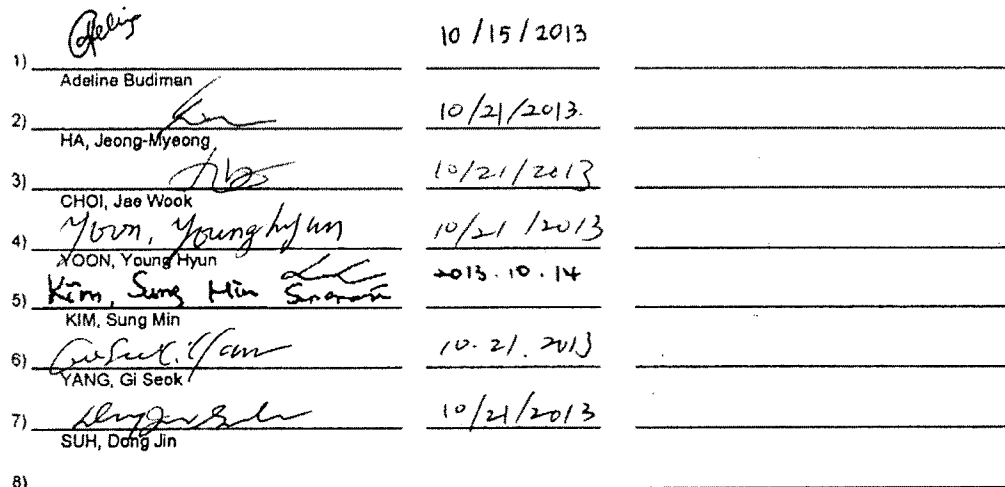 10/15/2013
1)
Adeline Budiman
10/21/2013.
2)
HA, Jeong-Myeong
10/21/2013
3)
CHOI, Jae Wook
Yoon, Younghyun 10/21/2013
4)
YOON, Young Hyun
Kim, Sung Min 2013.10.14
5)
KIM, Sung Min
10.21.2013
6)
YANG, Gi Seok
10/21/2013
7)
SUH, Dong Jin
8)